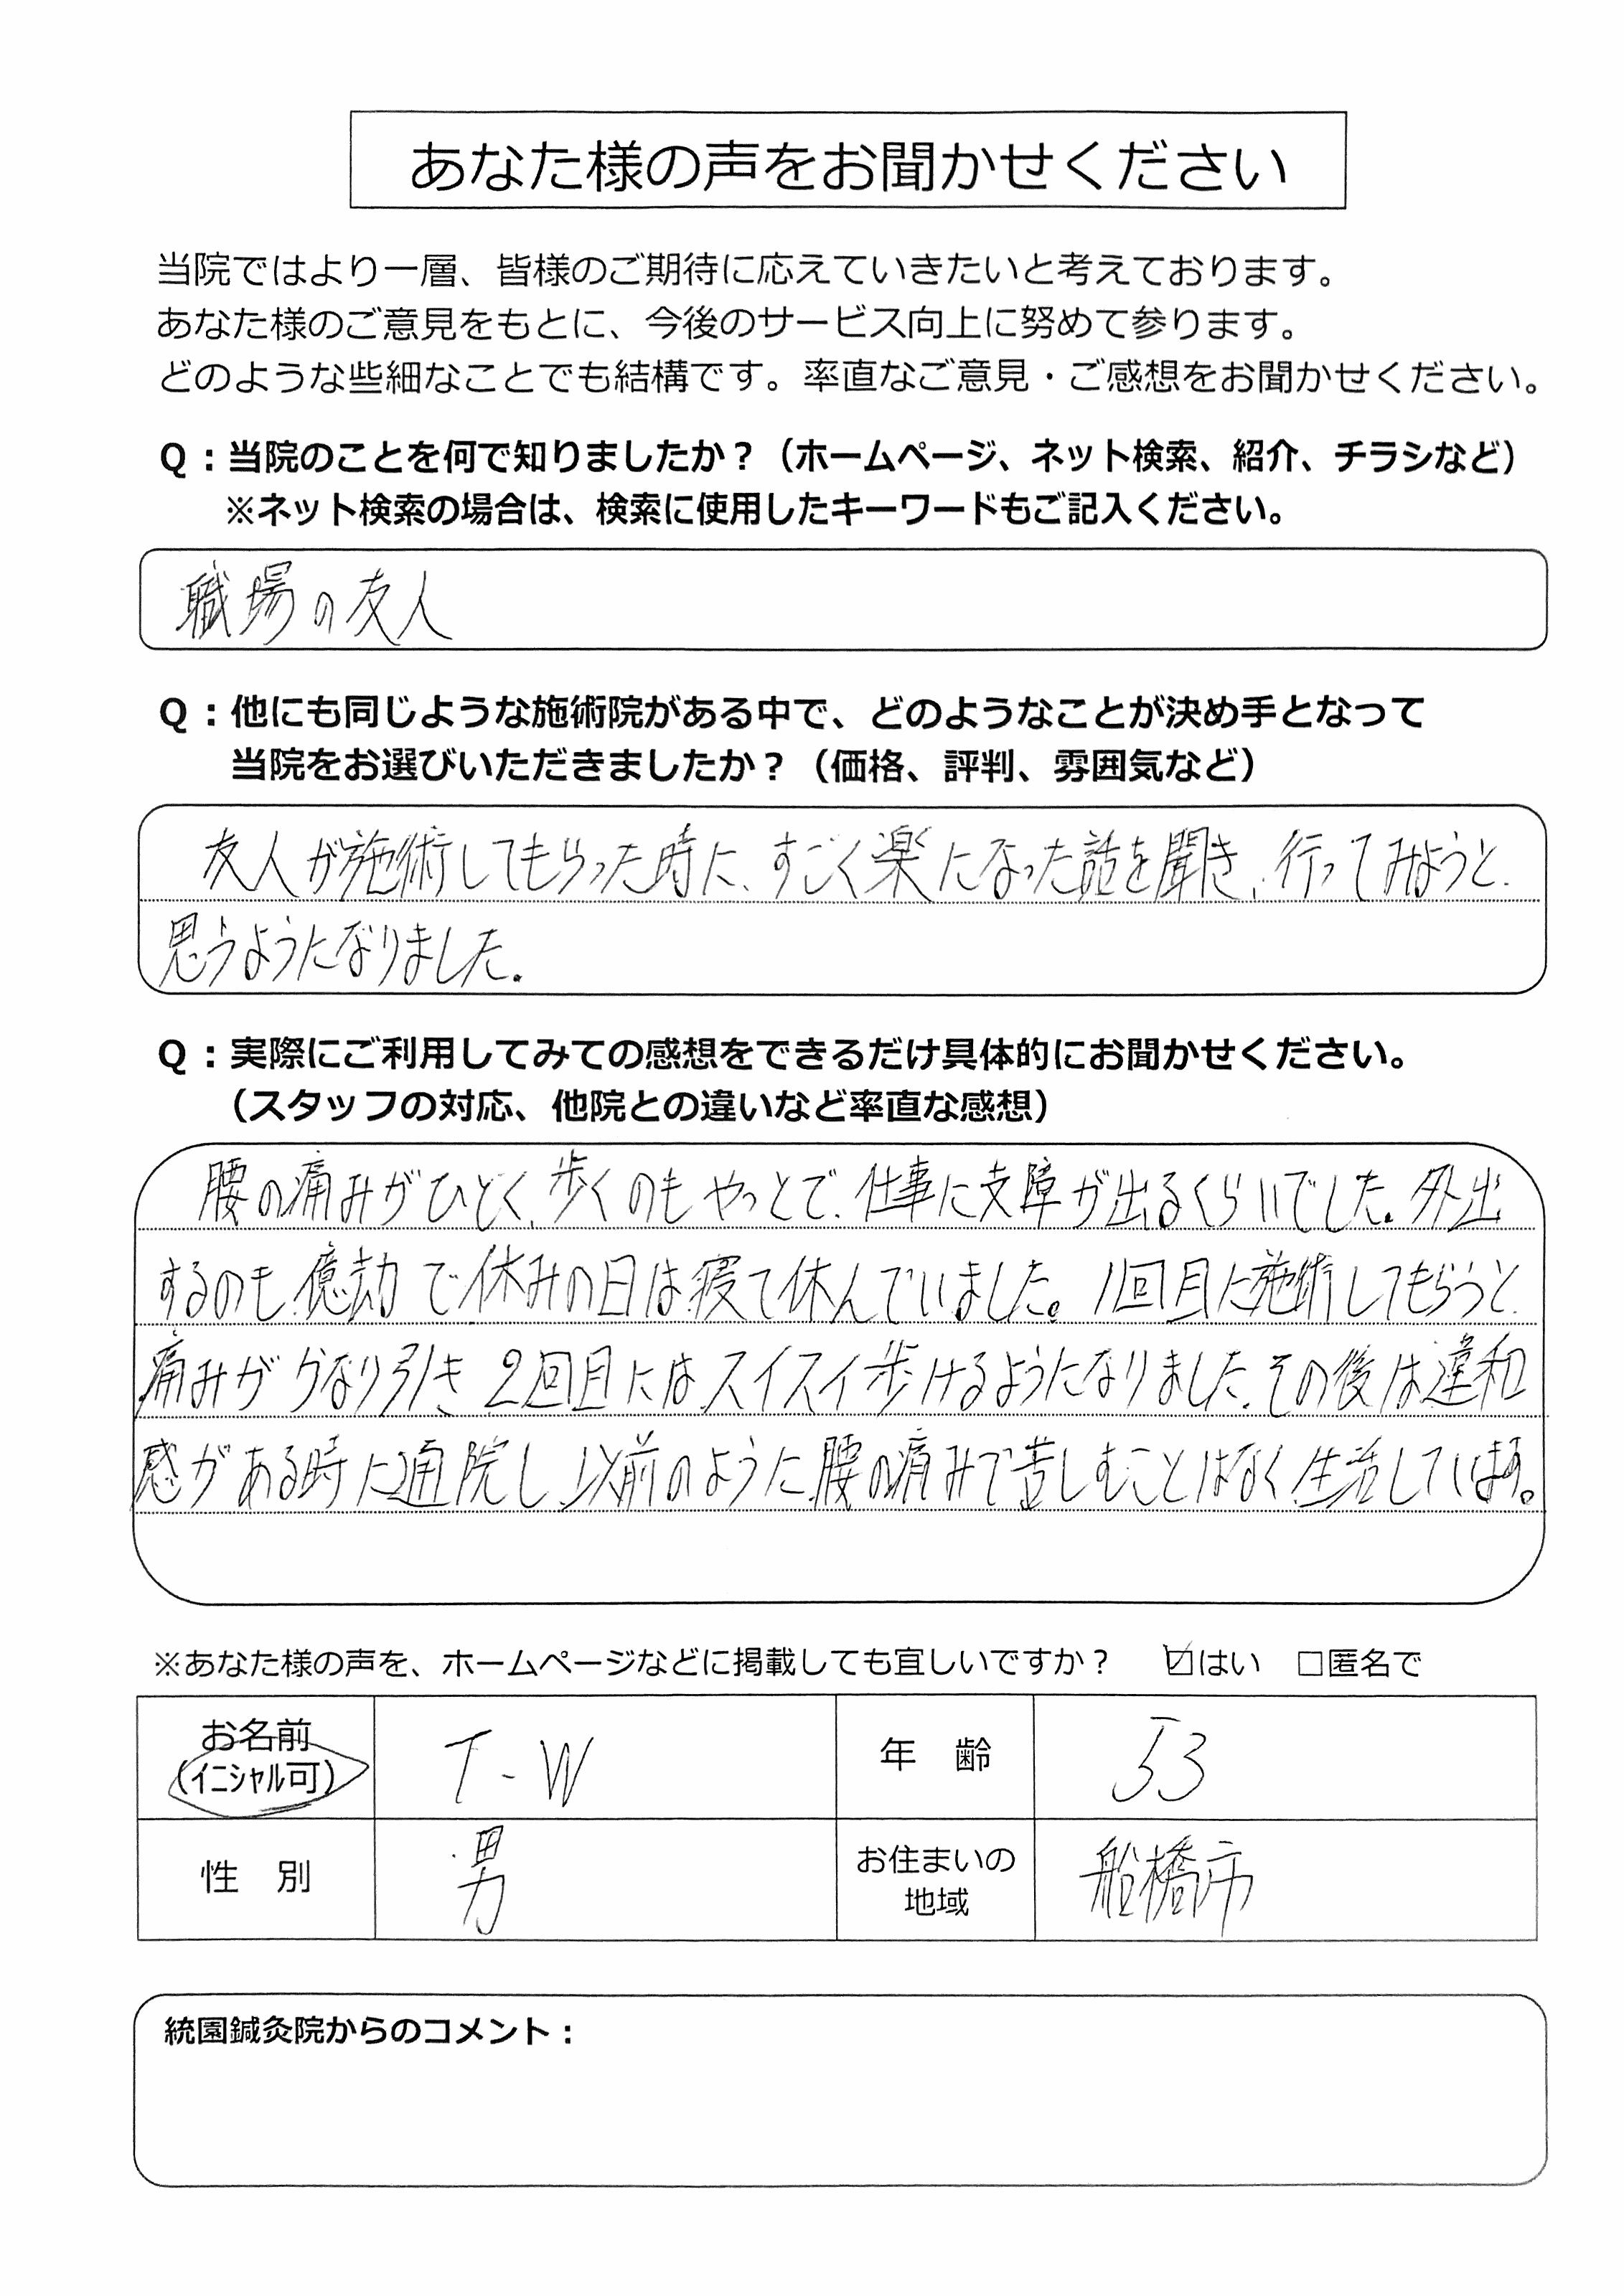 あなた様の声をお聞かせください
当院ではより一層、皆様のご期待に応えていきたいと考えております。
あなた様のご意見をもとに、今後のサービス向上に努めて参ります。
どのような些細なことでも結構です。率直なご意見・ご感想をお聞かせください。
Q：当院のことを何で知りましたか？（ホームページ、ネット検索、紹介、チラシなど）
※ネット検索の場合は、検索に使用したキーワードもご記入ください。
職場の友人
Q：他にも同じような施術院がある中で、どのようなことが決め手となって
当院をお選びいただきましたか？（価格、評判、雰囲気など）
友人が施術してもらった時に、すごく楽になった話を聞き、行ってみようと
思うようになりました。
Q：実際にご利用してみての感想をできるだけ具体的にお聞かせください。
（スタッフの対応、他院との違いなど率直な感想）
腰の痛みがひどく、歩くのもやっとで、仕事に支障が出るくらいでした。外出
するのも億劫で休みの日は寝て休んでいました。1回目に施術してもらうと
痛みがかなり引き、2回目にはスイスイ歩けるようになりました。その後は違和
感がある時に通院し、以前のように腰の痛みで苦しむことはなく生活しています。
※あなた様の声を、ホームページなどに掲載しても宜しいですか？ ☑はい □匿名で
お名前 T-W 年 齢 53
（イニシャル可）
性 別 男 お住まいの 船橋市
地域
統園鍼灸院からのコメント：